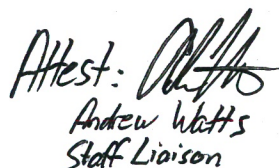 Attest:
Andrew Watts
Staff Liaison